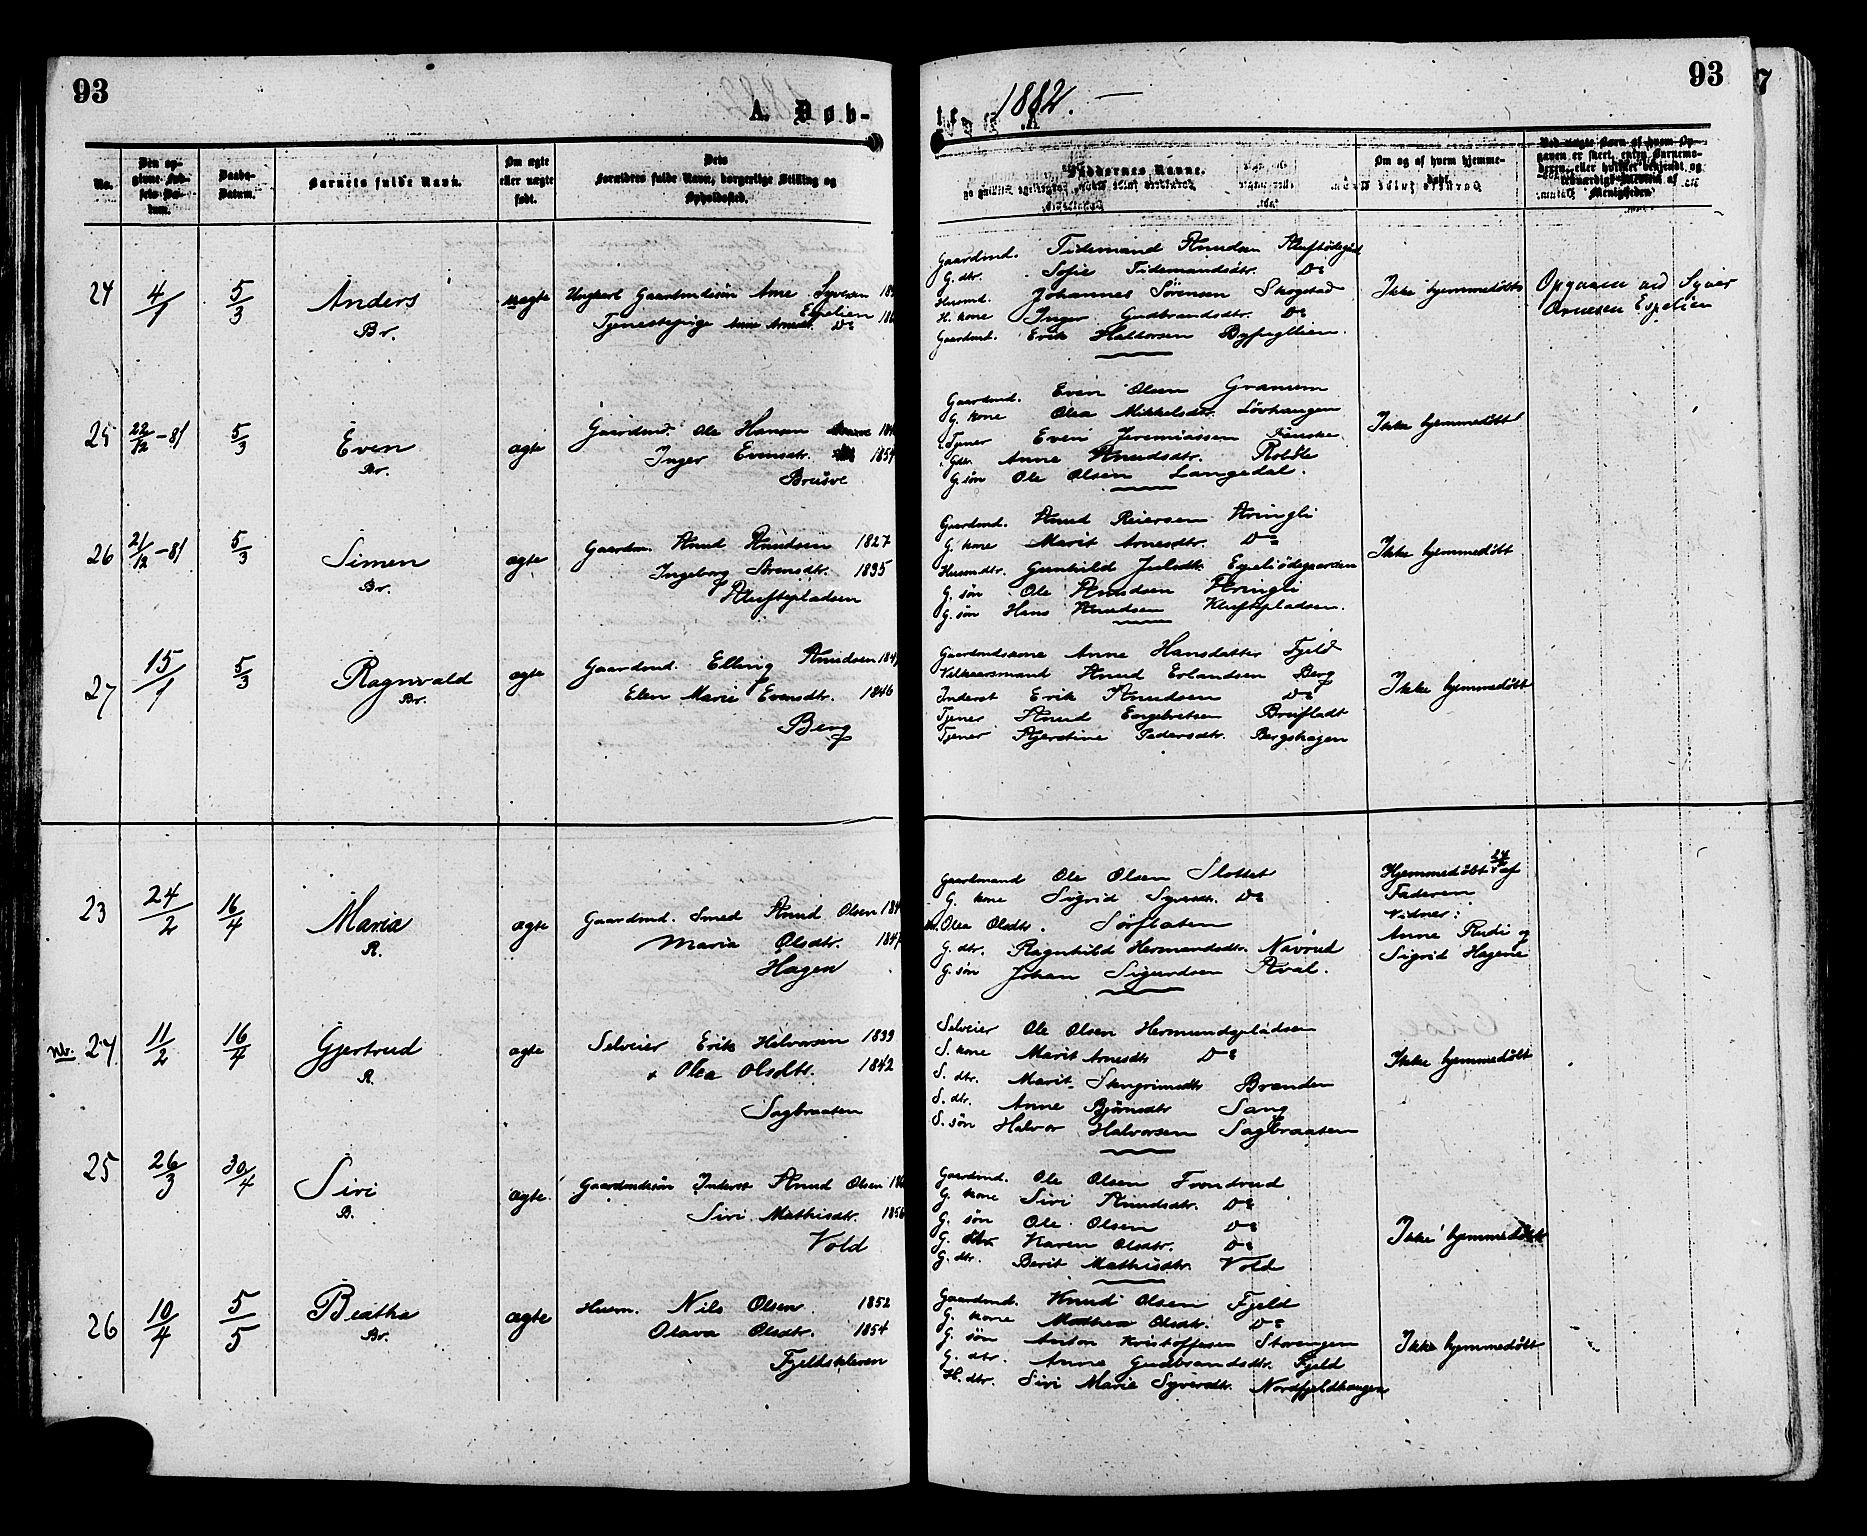 93
A. Døb-
1882.
93
7
No.
Den op-
givne Fød-
sels-Da-
tum.
Daabs-
Datum.
Barnets fulde Navn.
Om ægte
eller uægte
født.
Dets
Forældres fulde Navn, borgerlige Stilling og
Opholdssted.
Faddernes Navne.
Om og af hvem hjemme-
døbt.
24 4/1 5/3 Anders
Br.
uægte Ungkarl Gaardmdssøn Arne Syversen
Espelien
Tjenestepige Anne Arnesdt. Do
Gaardmd. Tidemand Knudsen
G. dtr. Sofie Tidemandsdtr. Do
Husmd. Johannes Sörensen Skogstad
H. kone Inger Gudbrandsdtr. Do
Gaardmd. Erik Haldorsen
Ikke hjemmedøbt
Opgaven ved Syver
Arnesen Espelien
25 22/12-81 5/3 Even
Br.
ægte Gaardmd. Ole Hansen
Inger Evensdtr. 1854
Brusve
Gaardmd. Even Olsen Granum
G. kone Olea Mikkelsdtr. Lövhaugen
Tjener Even Jeremiassen
Gdtr. Anne Knudsdtr. Roble
G. søn Ole Olsen Langedal.
Ikke hjemmedøbt
26 21/12-81 5/3 Simen
Br.
ægte Gaardm. Knud Knudsen 1827
Ingeborg 1835
Kluftepladsen
Gaardmd. Knud Reiersen Kringli
G. kone Marit Arnesdtr. Do
Husmdtr. Gunhild Julsdt. Espeliødegaarden
G. søn Ole Knudsen Kringli
G. søn Hans Knudsen Kluftepladsen.
Ikke hjemmedøbt
27 15/1 5/3 Ragnvald
Br.
ægte Gaardmd. Elling Knudsen
Elen Marie Evensdtr. 1846
Berg
Gaardmdskone Anne Hansdatter Fjeld
Vilkaarsmand Knud Erlandsen Berg
Inderst Erik Knudsen Do
Tjener Knud Engebretsen Breifladt
Tjener Kjerstine Pedersdtr. Bergshagen
Ikke hjemmedøbt
23 24/2 16/4 Maria
R.
ægte Gaardmd. Smed Knud Olsen
Maria Olsdtr. 1847
Hagen
Gaardmand Ole Olsen Slottet
G. kone Sigrid Syversdtr. Do
Olea Olsdtr. Sörflaten
G. dtr. Ragnhild Hermandsdtr. Navrud
G. søn Johan Sigurdsen Kval.
Hjemmedøbt af
Faderen
Vidner:
Anne Rudi og
Sigrid Hagene
nb. 24 11/2 16/4 Gjertrud
R.
ægte Selveier Erik Halvorsen 1839
Olea Olsdtr. 1842
Sagbraaten
Selveier Ole Olsen Hermundspladsen
S. kone Marit Arnesdtr Do
S. dtr. Marit Brenden
S. dtr. Anne Bjørnsdtr Sang
S. søn Halvor Halvorsen Sagbraaten
Ikke hjemmedøbt
25 26/3 30/4 Siri
B.
ægte. Gaardmdssøn Inderst Knud Olsen
Siri Mathisdtr. 1856
Vold
Gaardmd. Ole Olsen Frøndrud
G. kone Siri Knudsdtr. Do
G. søn Ole Olsen Do
G. dtr Karen Olsdtr. Do
G. dtr. Berit Mathisdtr. Vold
Ikke hjemmedøbt
26 10/4 5/5 Beatha
Br.
ægte Husm. Nils Olsen 1852
Olava Olsdtr. 1854
Fjeldskleven
Gaardmd. Knud Olsen Fjeld
G. kone Mathea Olsdtr. Do
G. søn Anton Kristoffesen Storengen
G. dtr. Anne Gudbrandsdtr. Fjeld
H. dtr. Siri Marie Syversdtr. Nordfjeldhaugen
Ikke hjemmedøbt